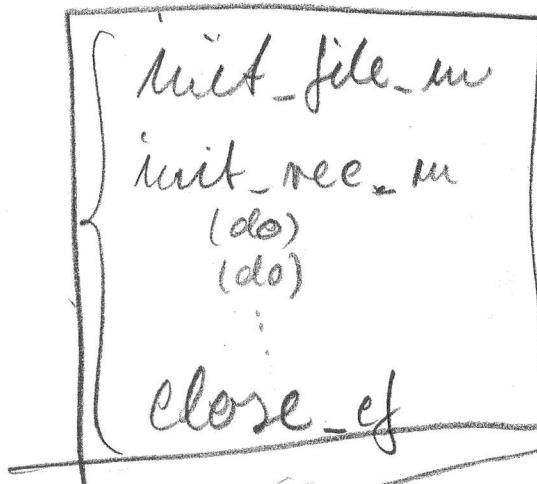 init_file_m
init_rec_m
(do)
(do)
⋮
close_cf